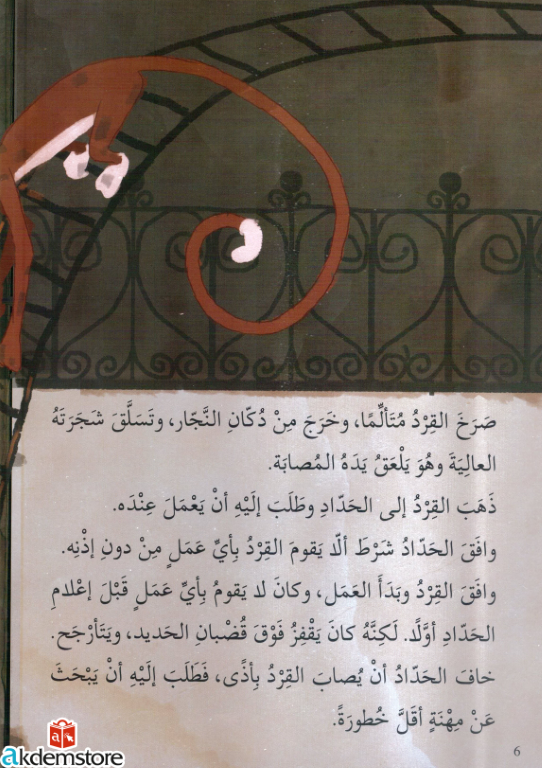 صَرَخَ القِرْدُ مُتَأَلِّمًا، وخَرَجَ مِنْ دُكّانِ النَّجّار، وتَسَلَّقَ شَجَرَتَهُ
العالِيَةَ وهُوَ يَلْعَقُ يَدَهُ المُصابَة.
ذَهَبَ القِرْدُ إلى الحَدّادِ وطَلَبَ إلَيْهِ أنْ يَعْمَلَ عِنْدَه.
وافَقَ الحَدّادُ شَرْطَ ألّا يَقومَ القِرْدُ بِأيِّ عَمَلٍ مِنْ دونِ إذْنِه.
وافَقَ القِرْدُ وبَدَأَ العَمَل، وكانَ لا يَقومُ بِأيِّ عَمَلٍ قَبْلَ إعْلامِ
الحَدّادِ أوَّلًا. لَكِنَّهُ كانَ يَقْفِزُ فَوْقَ قُضْبانِ الحَديد، ويَتَأرْجَح.
خافَ الحَدّادُ أنْ يُصابَ القِرْدُ بِأذًى، فَطَلَبَ إلَيْهِ أنْ يَبْحَثَ
عَنْ مِهْنَةٍ أقَلَّ خُطورَةً.
6
a.k
akdemstore